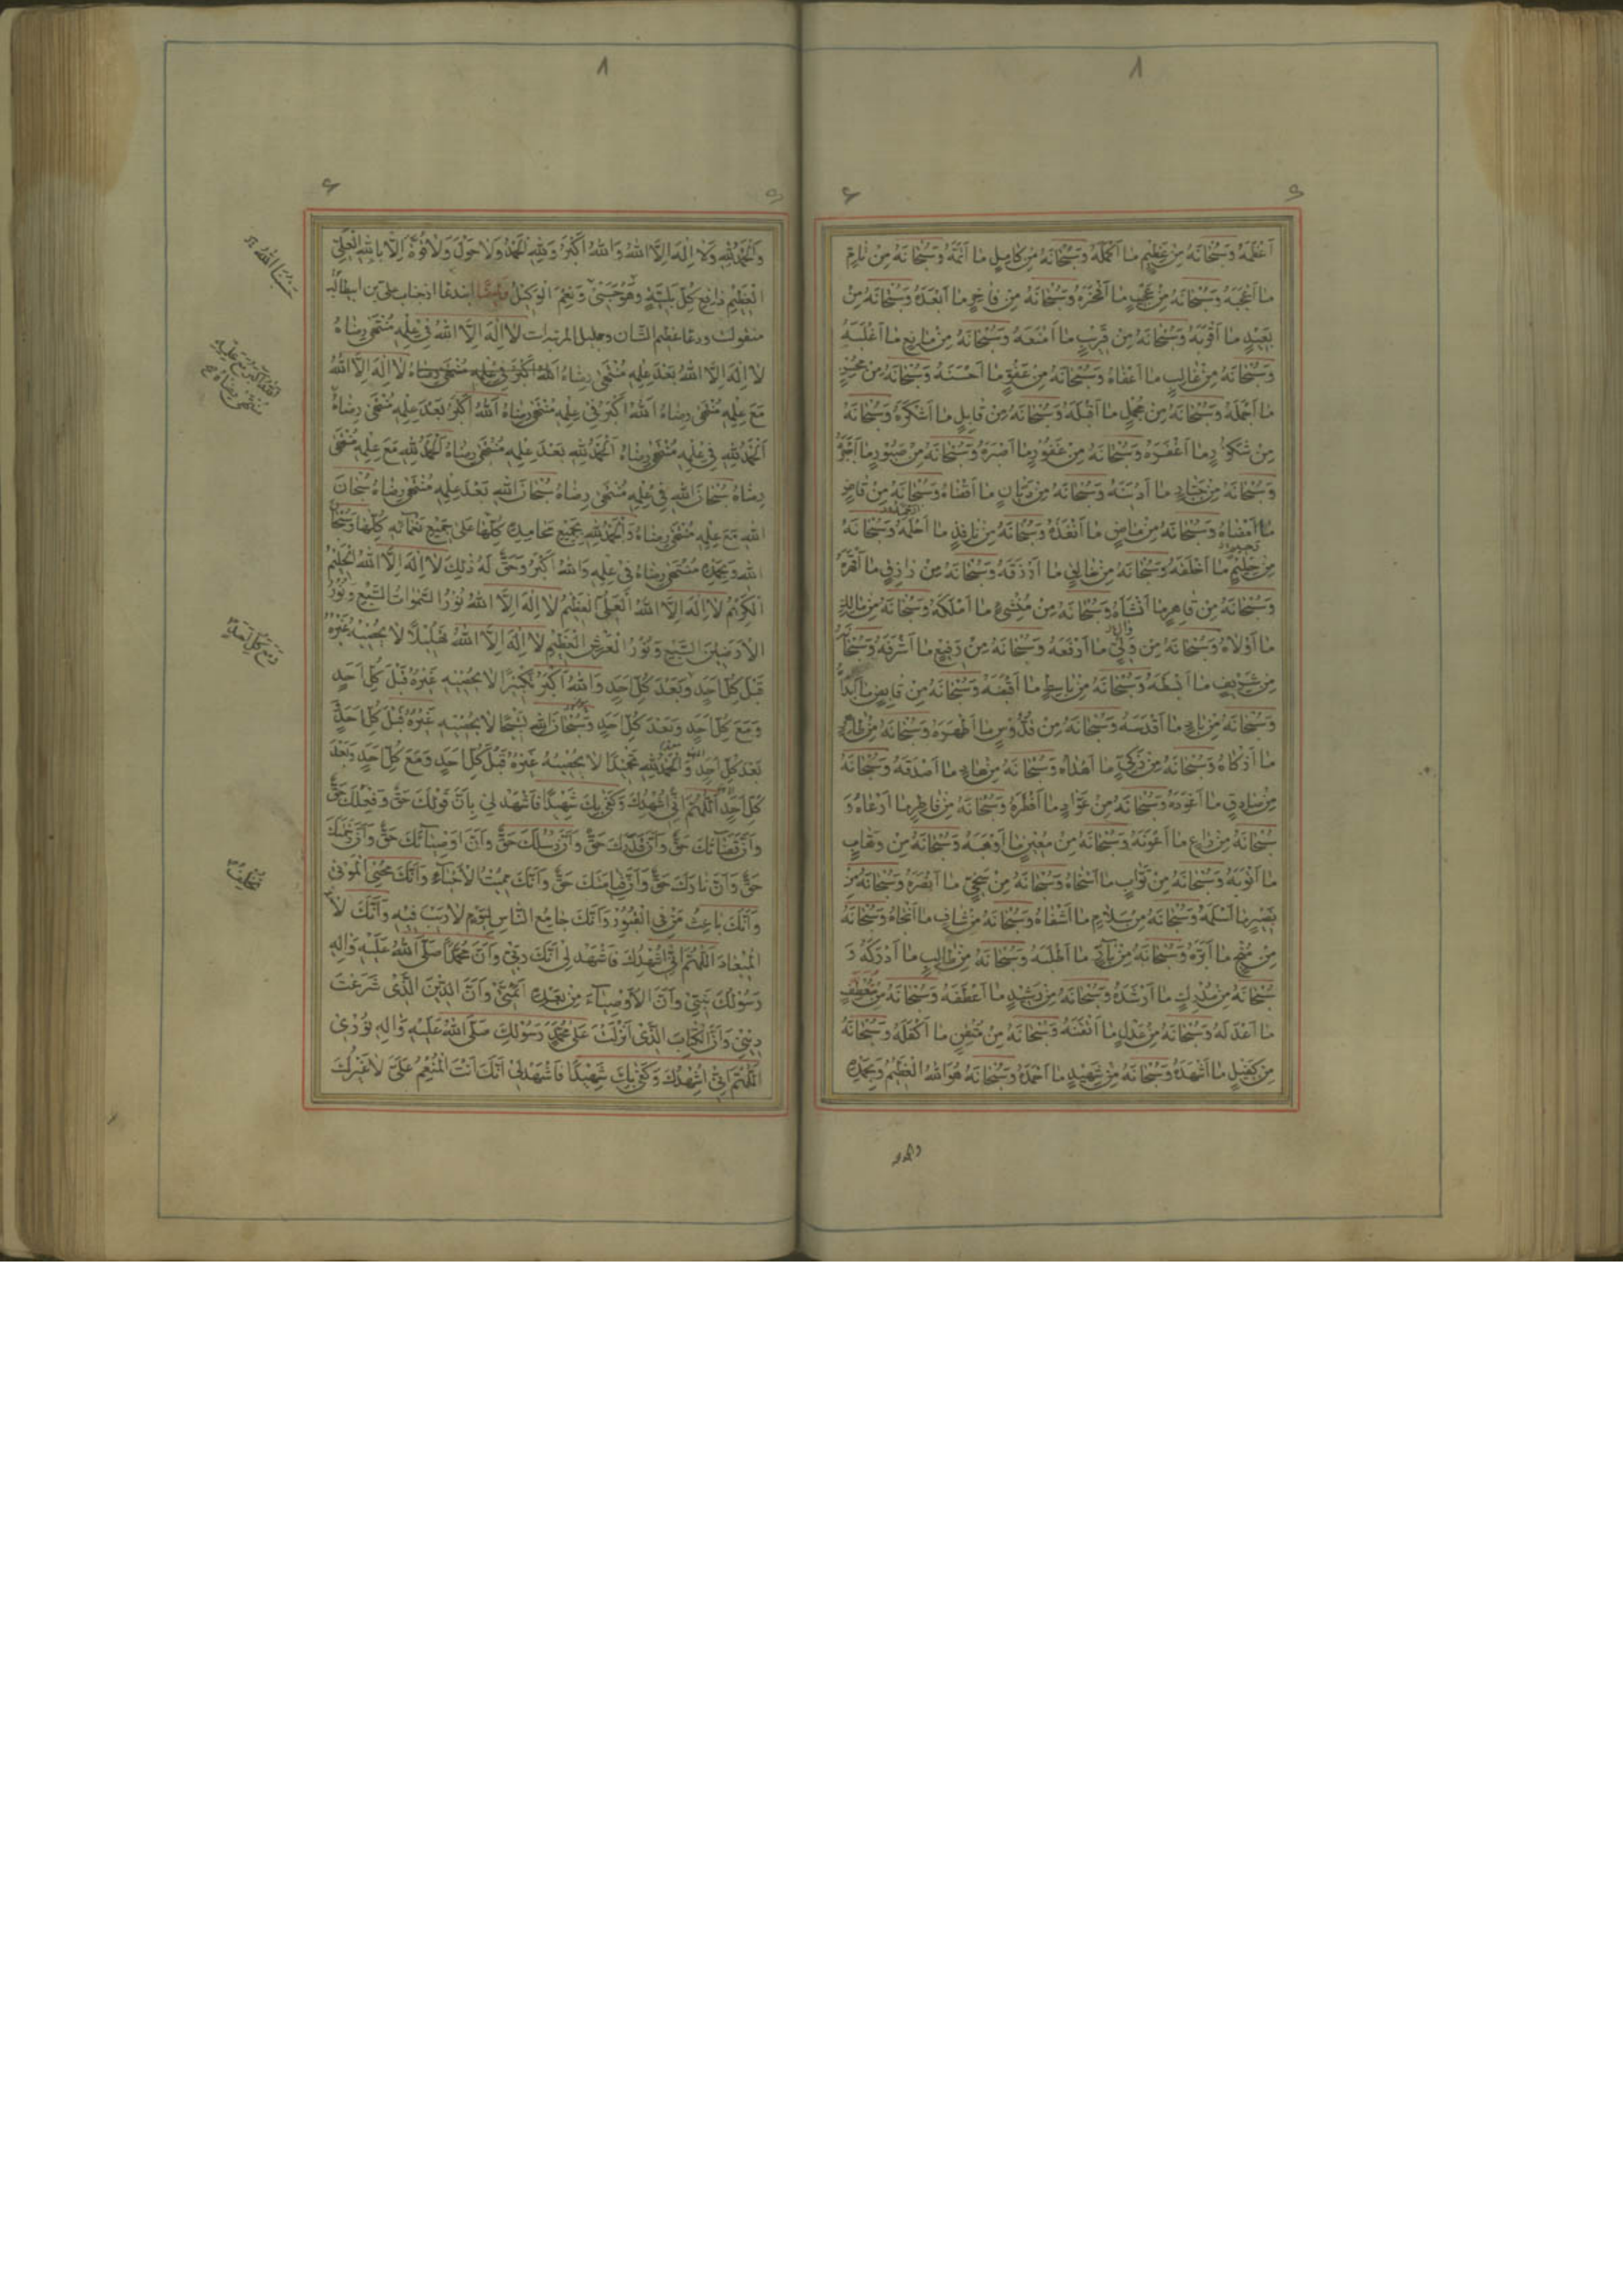 ٨
اَعْظَمَهُ وَسُبْحَانَهُ مِنْ عَظِيمٍ مَا اَكْمَلَهُ وَسُبْحَانَهُ مِنْ كَامِلٍ مَا اَتَمَّهُ وَسُبْحَانَهُ مِنْ
مَا اَعْجَبَهُ وَسُبْحَانَهُ مِنْ عَجِيبٍ مَا اَفْخَرَهُ وَسُبْحَانَهُ مِنْ فَاخِرٍ مَا اَبْعَدَهُ وَسُبْحَانَهُ مِنْ
بَعِيدٍ مَا اَقْرَبَهُ وَسُبْحَانَهُ مِنْ قَرِيبٍ مَا اَمْنَعَهُ وَسُبْحَانَهُ مِنْ مَانِعٍ مَا اَغْلَبَهُ
وَسُبْحَانَهُ مِنْ غَالِبٍ مَا اَعْفَاهُ وَسُبْحَانَهُ مِنْ عَفُوٍّ مَا اَحْسَنَهُ وَسُبْحَانَهُ مِنْ مُحْسِنٍ
مَا اَجْمَلَهُ وَسُبْحَانَهُ مِنْ مَا اَقْبَلَهُ وَسُبْحَانَهُ مِنْ قَابِلٍ مَا اَشْكَرَهُ وَسُبْحَانَهُ
مِنْ شَكُورٍ مَا اَغْفَرَهُ وَسُبْحَانَهُ مِنْ غَفُورٍ مَا اَصْبَرَهُ وَسُبْحَانَهُ مِنْ صَبُورٍ مَا
وَسُبْحَانَهُ مِنْ جَبَّارٍ مَا اَدْيَنَهُ وَسُبْحَانَهُ مِنْ دَيَّانٍ مَا اَقْضَاهُ وَسُبْحَانَهُ مِنْ قَاضٍ
مَا اَمْضَاهُ وَسُبْحَانَهُ مِنْ مَاضٍ مَا اَنْفَذَهُ وَسُبْحَانَهُ مِنْ نَافِذٍ مَا اَحْلَمَهُ وَسُبْحَانَهُ
مِنْ حَلِيمٍ مَا اَخْلَقَهُ وَسُبْحَانَهُ مِنْ خَالِقٍ مَا اَرْزَقَهُ وَسُبْحَانَهُ مِنْ رَازِقٍ مَا اَقْهَرَهُ
وَسُبْحَانَهُ مِنْ قَاهِرٍ مَا اَنْشَاَهُ وَسُبْحَانَهُ مِنْ مُنْشِئٍ مَا اَمْلَكَهُ وَسُبْحَانَهُ مِنْ مَالِكٍ
مَا اَوْلَاهُ وَسُبْحَانَهُ مِنْ مَا اَرْفَعَهُ وَسُبْحَانَهُ مِنْ رَفِيعٍ مَا اَشْرَفَهُ وَسُبْحَانَهُ
مِنْ شَرِيفٍ مَا اَبْسَطَهُ وَسُبْحَانَهُ مِنْ بَاسِطٍ مَا اَقْبَضَهُ وَسُبْحَانَهُ مِنْ قَابِضٍ مَا اَبْدَاَهُ
وَسُبْحَانَهُ مِنْ مَا اَقْدَسَهُ وَسُبْحَانَهُ مِنْ قُدُّوسٍ مَا اَطْهَرَهُ وَسُبْحَانَهُ مِنْ طَاهِرٍ
مَا اَزْكَاهُ وَسُبْحَانَهُ مِنْ زَكِيٍّ مَا اَهْدَاهُ وَسُبْحَانَهُ مِنْ هَادٍ مَا اَصْدَقَهُ وَسُبْحَانَهُ
مِنْ صَادِقٍ مَا اَعْوَدَهُ وَسُبْحَانَهُ مِنْ عَوَّادٍ مَا اَفْطَرَهُ وَسُبْحَانَهُ مِنْ فَاطِرٍ مَا اَرْعَاهُ وَ
سُبْحَانَهُ مِنْ رَاعٍ مَا اَعْوَنَهُ وَسُبْحَانَهُ مِنْ مُعِينٍ مَا اَوْهَبَهُ وَسُبْحَانَهُ مِنْ وَهَّابٍ
مَا اَتْوَبَهُ وَسُبْحَانَهُ مِنْ تَوَّابٍ مَا اَسْخَاهُ وَسُبْحَانَهُ مِنْ سَخِيٍّ مَا اَبْصَرَهُ وَسُبْحَانَهُ مِنْ
بَصِيرٍ مَا اَسْلَمَهُ وَسُبْحَانَهُ مِنْ سَلَامٍ مَا اَشْفَاهُ وَسُبْحَانَهُ مِنْ شَافٍ مَا اَنْجَاهُ وَسُبْحَانَهُ
مِنْ مُنْجٍ مَا اَبَرَّهُ وَسُبْحَانَهُ مِنْ بَارٍّ مَا اَطْلَبَهُ وَسُبْحَانَهُ مِنْ طَالِبٍ مَا اَدْرَكَهُ وَ
سُبْحَانَهُ مِنْ مُدْرِكٍ مَا اَرْشَدَهُ وَسُبْحَانَهُ مِنْ رَشِيدٍ مَا اَعْطَفَهُ وَسُبْحَانَهُ مِنْ مُتَعَطِّفٍ
مَا اَعْدَلَهُ وَسُبْحَانَهُ مِنْ عَدْلٍ مَا اَتْقَنَهُ وَسُبْحَانَهُ مِنْ مُتْقِنٍ مَا اَكْفَلَهُ وَسُبْحَانَهُ
مِنْ كَفِيلٍ مَا اَشْهَدَهُ وَسُبْحَانَهُ مِنْ شَهِيدٍ مَا اَحْمَدَهُ وَسُبْحَانَهُ هُوَ اللهُ الْعَظِيمُ وَبِحَمْدِهِ
٨
وَالْحَمْدُ لِلّٰهِ وَلَا اِلٰهَ اِلَّا اللهُ وَاللهُ اَكْبَرُ وَلِلّٰهِ الْحَمْدُ وَلَا حَوْلَ وَلَا قُوَّةَ اِلَّا بِاللهِ الْعَلِيِّ
الْعَظِيمِ دَافِعِ كُلِّ بَلِيَّةٍ وَهُوَ حَسْبِي وَنِعْمَ الْوَكِيلُ
منقولست ودعا عظيم الشان وجليل المرتبه است لَا اِلٰهَ اِلَّا اللهُ فِي عِلْمِهِ مُنْتَهَى رِضَاهُ
لَا اِلٰهَ اِلَّا اللهُ بَعْدَ عِلْمِهِ مُنْتَهَى رِضَاهُ اَللهُ اَكْبَرُ فِي عِلْمِهِ مُنْتَهَى رِضَاهُ لَا اِلٰهَ اِلَّا اللهُ
مَعَ عِلْمِهِ مُنْتَهَى رِضَاهُ اَللهُ اَكْبَرُ فِي عِلْمِهِ مُنْتَهَى رِضَاهُ اَللهُ اَكْبَرُ بَعْدَ عِلْمِهِ مُنْتَهَى رِضَاهُ
اَلْحَمْدُ لِلّٰهِ فِي عِلْمِهِ مُنْتَهَى رِضَاهُ اَلْحَمْدُ لِلّٰهِ بَعْدَ عِلْمِهِ مُنْتَهَى رِضَاهُ اَلْحَمْدُ لِلّٰهِ مَعَ عِلْمِهِ مُنْتَهَى
رِضَاهُ سُبْحَانَ اللهِ فِي عِلْمِهِ مُنْتَهَى رِضَاهُ سُبْحَانَ اللهِ بَعْدَ عِلْمِهِ مُنْتَهَى رِضَاهُ سُبْحَانَ
اللهِ مَعَ عِلْمِهِ مُنْتَهَى رِضَاهُ وَالْحَمْدُ لِلّٰهِ بِجَمِيعِ مَحَامِدِهِ كُلِّهَا عَلَى جَمِيعِ نَعْمَائِهِ كُلِّهَا وَسُبْحَانَ
اللهِ وَبِحَمْدِهِ مُنْتَهَى رِضَاهُ فِي عِلْمِهِ وَاللهُ اَكْبَرُ وَحَقٌّ لَهُ ذٰلِكَ لَا اِلٰهَ اِلَّا اللهُ الْحَلِيمُ
الْكَرِيمُ لَا اِلٰهَ اِلَّا اللهُ الْعَلِيُّ الْعَظِيمُ لَا اِلٰهَ اِلَّا اللهُ نُورُ السَّمٰوَاتِ السَّبْعِ وَنُورُ
الْاَرَضِينَ السَّبْعِ وَنُورُ الْعَرْشِ الْعَظِيمِ لَا اِلٰهَ اِلَّا اللهُ تَهْلِيلًا لَا يُحْصِيهِ غَيْرُهُ
قَبْلَ كُلِّ اَحَدٍ وَبَعْدَ كُلِّ اَحَدٍ وَاللهُ اَكْبَرُ تَكْبِيرًا لَا يُحْصِيهِ غَيْرُهُ قَبْلَ كُلِّ اَحَدٍ
وَمَعَ كُلِّ اَحَدٍ وَبَعْدَ كُلِّ اَحَدٍ وَسُبْحَانَ اللهِ تَسْبِيحًا لَا يُحْصِيهِ غَيْرُهُ قَبْلَ كُلِّ اَحَدٍ
بَعْدَ كُلِّ اَحَدٍ وَالْحَمْدُ لِلّٰهِ تَحْمِيدًا لَا يُحْصِيهِ غَيْرُهُ قَبْلَ كُلِّ اَحَدٍ وَمَعَ كُلِّ اَحَدٍ وَبَعْدَ
كُلِّ اَحَدٍ اَللّٰهُمَّ اِنِّي اُشْهِدُكَ وَكَفَى بِكَ شَهِيدًا فَاشْهَدْ لِي بِاَنَّ قَوْلَكَ حَقٌّ وَفِعْلَكَ حَقٌّ
وَاَنَّ قَضَائَكَ حَقٌّ وَاَنَّ قَدَرَكَ حَقٌّ وَاَنَّ رُسُلَكَ حَقٌّ وَاَنَّ اَوْصِيَائَكَ حَقٌّ وَاَنَّ رَحْمَتَكَ
حَقٌّ وَاَنَّ نَارَكَ حَقٌّ وَاَنَّ قِيَامَتَكَ حَقٌّ وَاَنَّكَ مُمِيتُ الْاَحْيَاءِ وَاَنَّكَ مُحْيِي الْمَوْتَى
وَاَنَّكَ بَاعِثُ مَنْ فِي الْقُبُورِ وَاَنَّكَ جَامِعُ النَّاسِ لِيَوْمٍ لَا رَيْبَ فِيهِ وَاَنَّكَ لَا
الْمِيعَادَ اَللّٰهُمَّ اِنِّي اُشْهِدُكَ فَاشْهَدْ لِي اَنَّكَ رَبِّي وَاَنَّ مُحَمَّدًا صَلَّى اللهُ عَلَيْهِ وَآلِهِ
رَسُولَكَ نَبِيِّي وَاَنَّ الْاَوْصِيَاءَ مِنْ بَعْدِهِ اَئِمَّتِي وَاَنَّ الدِّينَ الَّذِي شَرَعْتَ
دِينِي وَاَنَّ الْكِتَابَ الَّذِي اَنْزَلْتَ عَلَى مُحَمَّدٍ رَسُولِكَ صَلَّى اللهُ عَلَيْهِ وَآلِهِ نُورِي
اَللّٰهُمَّ اِنِّي اُشْهِدُكَ وَكَفَى بِكَ شَهِيدًا فَاشْهَدْ لِي اَنَّكَ اَنْتَ الْمُنْعِمُ عَلَيَّ لَا غَيْرُكَ
حَسْبُنَا اللهُ
اَللهُ اَكْبَرُ مَعَ عِلْمِهِ
مُنْتَهَى رِضَاهُ
وَمَعَ كُلِّ اَحَدٍ
تُخْلِفُ